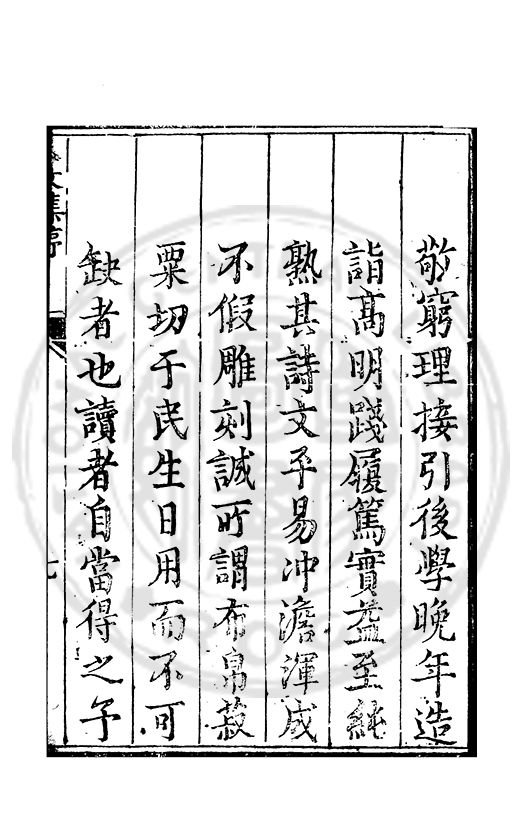 敬窮理接引後學晚年造
詣高明踐履篤實益至純
熟其詩文平易冲澹渾成
不假雕刻誠所謂布帛菽
粟切于民生日用而不可
缺者也讀者自當得之予
文集序
七